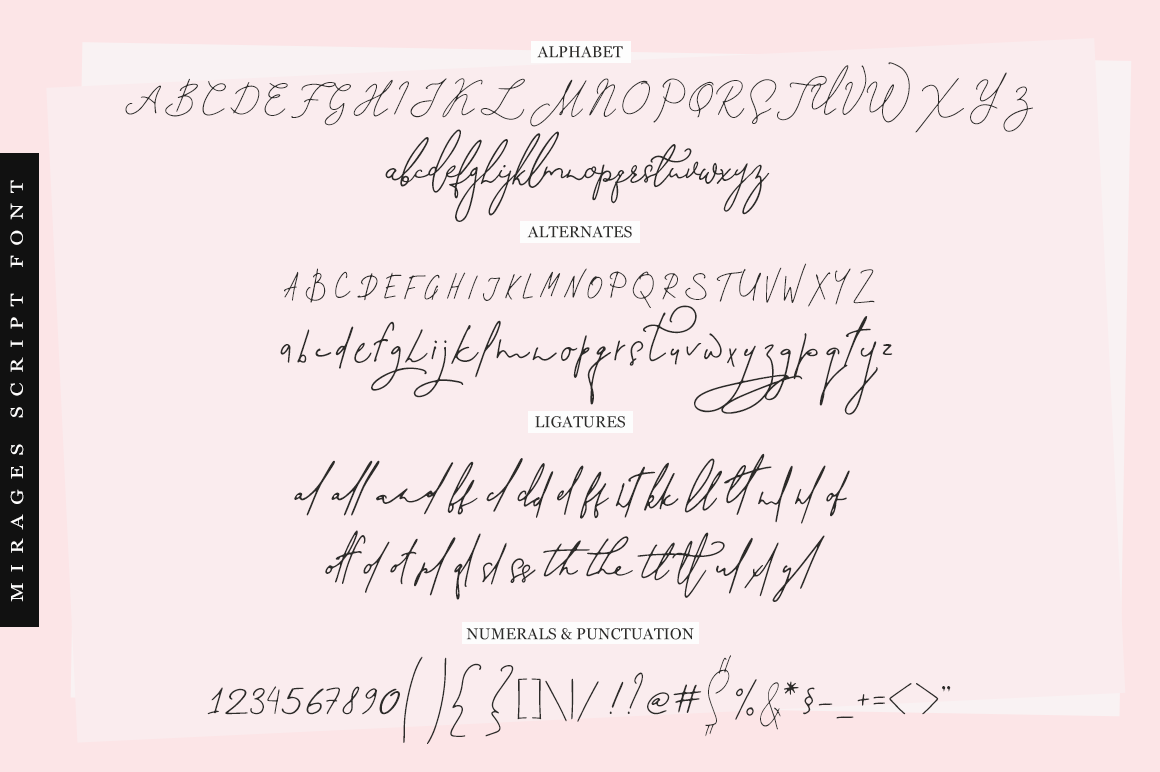 ALPHABET
ABCDEFGHIJKLMNOPQRSTUVWXYZ
abcdefghijklmnopqrstuvwxyz
ALTERNATES
ABCDEFGHIJKLMNOPQRSTUVWXYZ
abcdefghijklmnopqrstuvwxyzgpqtyz
LIGATURES
al all and ff cl dd el ff it kk ll tt ml nl of
off ol ot pl ql sl ss th the ttt tt ul xl yl
NUMERALS & PUNCTUATION
1234567890(){}[]\|/!?@#$%&*§-_+=<>"
MIRAGES SCRIPT FONT